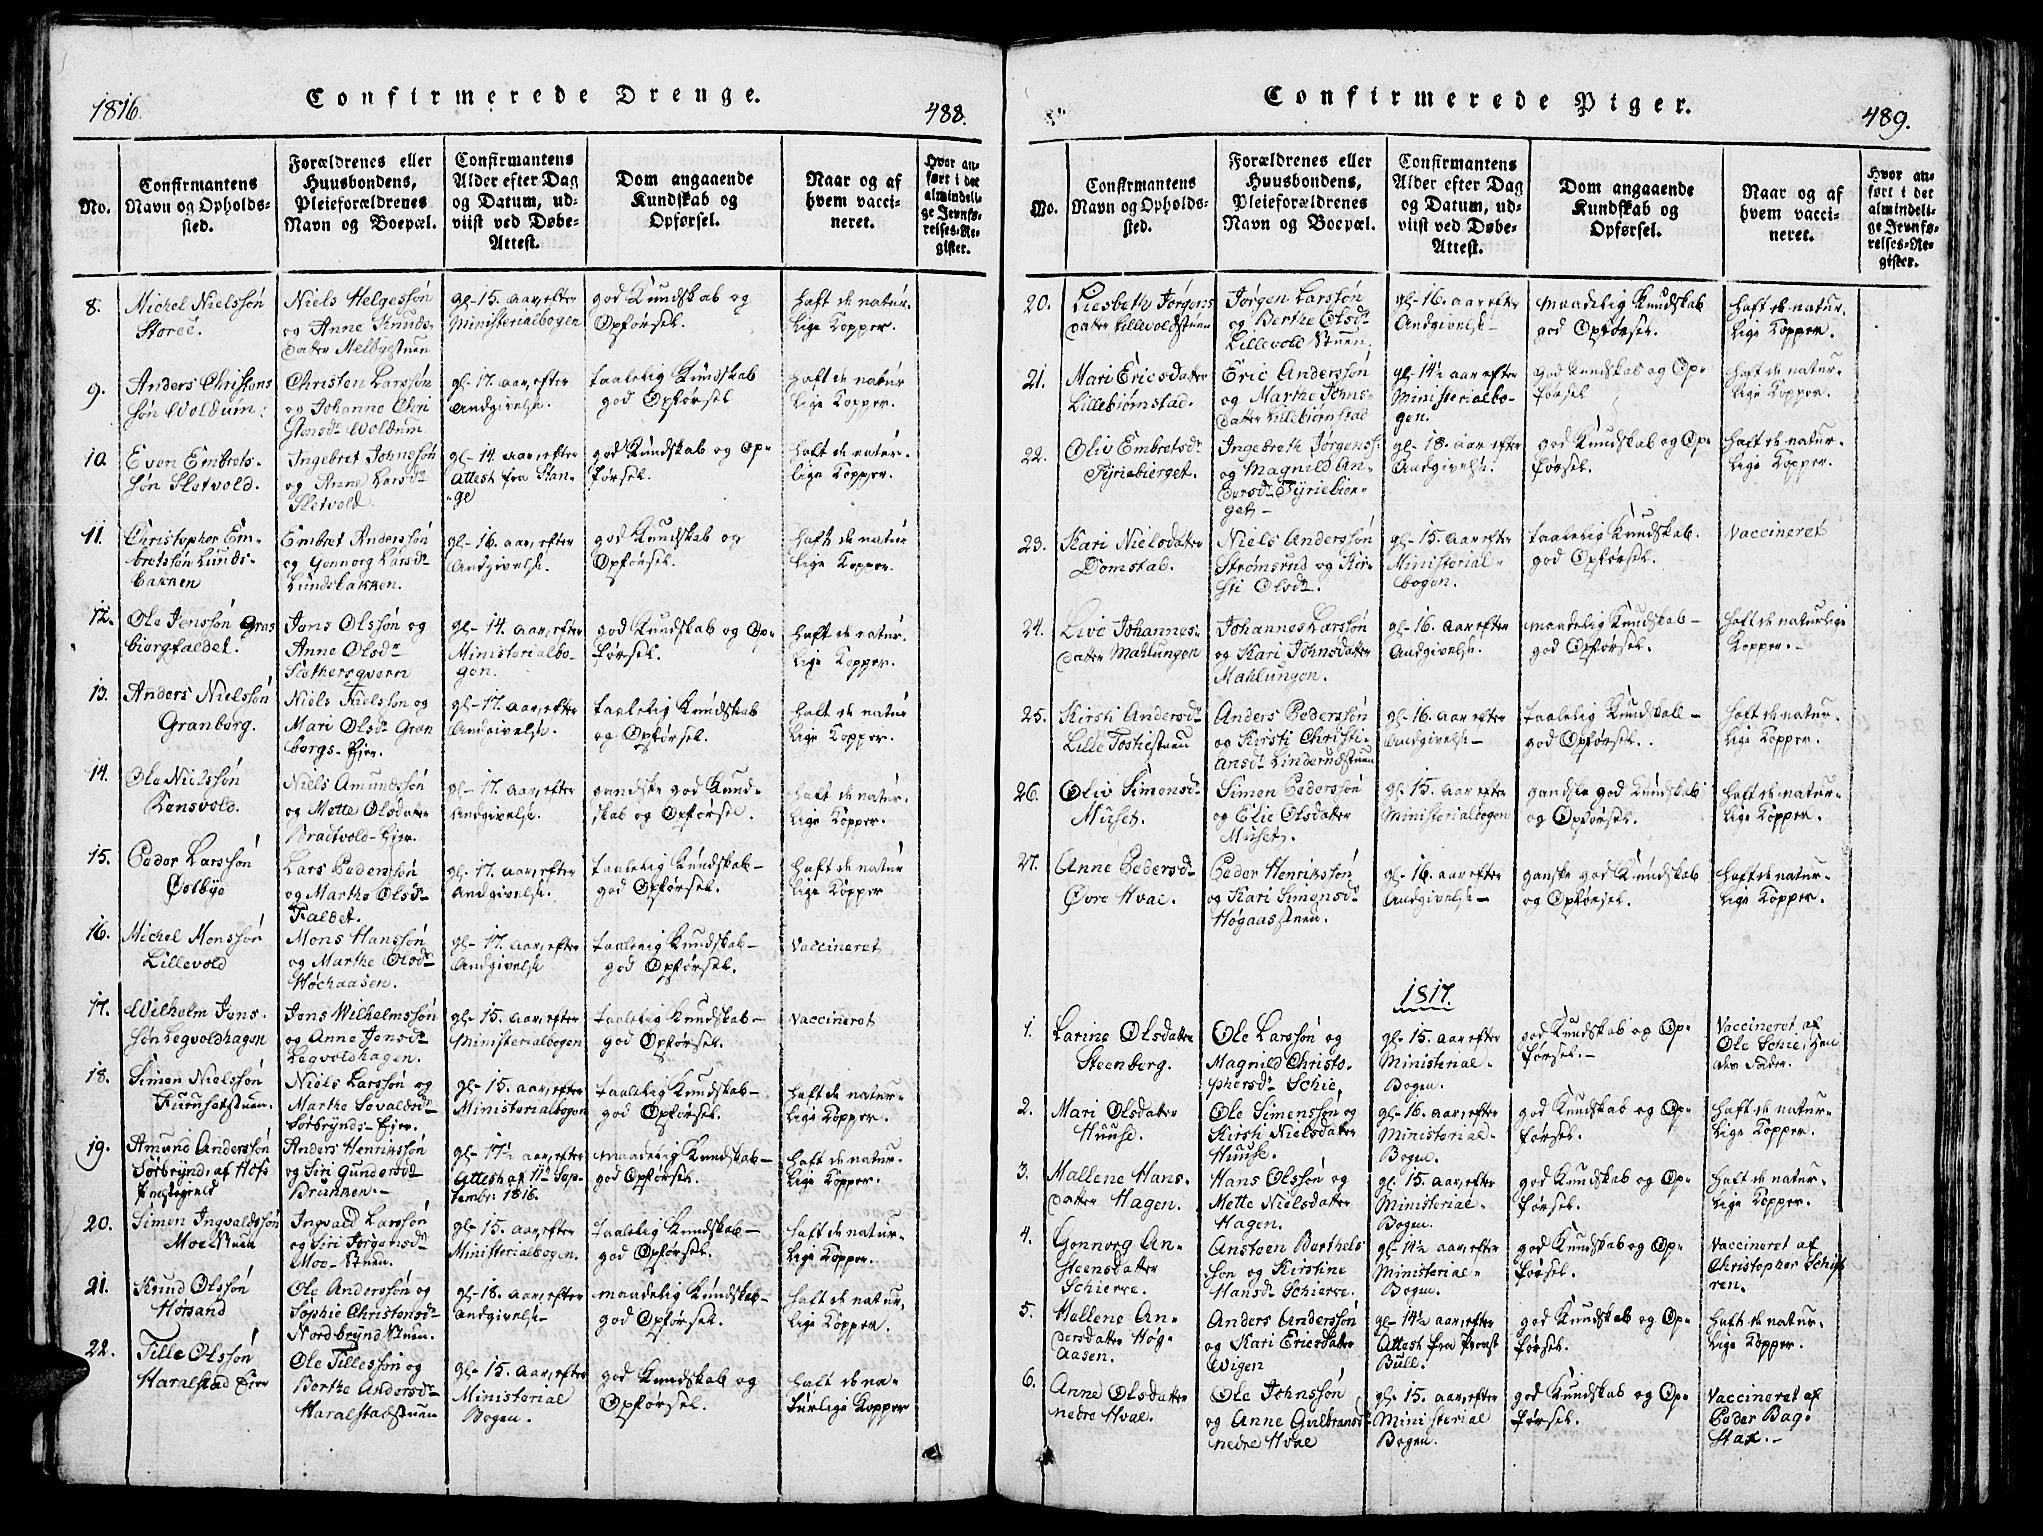 1816.
Confirmerede Drenge.
488.
No.
Confirmantens
Navn og Opholds-
sted.
Forældrenes eller
Huusbondens,
Pleieforældrenes
Navn og Boepæl.
Confirmantens
Alder efter Dag
og Datum, ud-
viist ved Døbe-
Attest.
Dom angaaende
Kundskab og
Opførsel.
Naar og af
hvem vacci-
neret.
Hvor an-
ført i det
almindeli-
ge Jevnfø-
relses-Re-
gister.
8.
Michel Nielssøn
Storee.
Niels Helgessøn
og Anne Knuds-
datter Melbyestuen
gl- 15. aar, efter
Ministerialbogen
god Kundskab og
Opførsel.
haft de natur.
lige Kopper.
9.
Anders Christens
søn Woldum.
Christen Larssøn
og Johanne Chri
stensdr Woldum
gl- 17. aar, efter
Andgivelse.
taalelig Kundskab
god Opførsel
haft de natur
lige Kopper.
10.
Even Embrets-
søn Sletvold.
Ingebret Johnssøn
og Anne Larsdr
Sletvold.
gl- 14 aar, efter
Attest fra Stan-
ge
god Kundskab og Op-
førsel.
haft de natur-
lige Kopper.
11.
Christopher Em-
bretssøn Lunds-
bakken
Embret Anderssøn
og Gonnorg Larsdr
Lundsbakken.
gl- 16. aar, efter
Andgivelse.
god Kundskab og
Opførsel.
haft de natur
lige Kopper.
12.
Ole Jenssøn Gras
biergfaldet.
Jens Olssøn og
Anne Olsdr
Sæthersqvern
gl- 14. aar, efter
Ministerialbo-
gen.
god Kundskab og Op-
førsel.
haft de natur.
lige Kopper.
13.
Anders Nielssøn
Granberg.
Niels Nielssøn og
Mari Olsdr Gran
bergs-Eier.
gl- 17. aar, efter
Andgivelse.
taalelig Kundskab
og Opførsel.
haft de natur
lige Kopper.
14.
Ole Nielssøn
Kensvold.
Niels Amundssøn
og Mette Olsdatter
Bradtvold-Eier.
gl- 17. aar, efter
Andgivelse.
gandske god Kund-
skab og Opførsel.
haft de natur.
lige Kopper.
15.
Peder Larssøn
Østbye
Lars Pederssøn
og Marthe Olsdr
Faldet.
gl- 17. aar, efter
Andgivelse.
taalelig Kundskab-
god Opførsel.
haft de natur
lige Kopper
16.
Michel Monssøn
Lillevold
Mons Hanssøn
og Marthe Olsdr
Høchaasen.
gl- 17. aar, efter
Andgivelse
taalelig Kundskab-
god Opførsel.
Vaccineret
17.
Wilhelm Jens-
søn Legvoldhagen
Jens Wilhelmssøn
og Anne Jensdr
Legvoldhagen.
gl- 15. aar, efter
Ministerialbogen
taalelig Kundskab-
god Opførsel.
Vaccineret
18.
Simen Nielssøn
Niels Larssøn og
Marthe
Sørbrynds-Eier.
gl- 15. aar, efter
Ministerialbogen
taalelig Kundskab-
god Opførsel.
haft de natur-
lige Kopper.
19.
Amund Anderssøn
Sørbrynd, af Hofs
Præstegield
Anders Henrikssøn
og Siri Gundersdr
Brunnen.-
gl- 17½ aar, efter
Attest af 11te Sep-
tembr: 1816.
maadelig Kundskab-
god Opførsel.
haft de natur-
lige Kopper.
20.
Simen Ingvaldssøn
Moe Stuen
Ingvald Larssøn
og Siri Jørgensdr
Moe-Stuen.
gl- 15. aar, efter
Ministerialbogen.
taalelig Kundskab-
god Opførsel.
haft de natur-
lige Kopper.
21.
Knud Olssøn
Hørsand
Ole Anderssøn og
Sophie Christensdr
Nordbrynd Stuen.
gl- 18. aar, efter
andgivelse
maadelig Kundskab-
god Opførsel.
haft de natur,
lige Kopper.
22.
Tille Olssøn
Haralstad Eier
Ole Tillessøn og
Berthe Andersdr
Haralstadstuen
gl- 15. aar, efter
Ministerial
Bogen.
god Kundskab og
Opførsel.
haft de na-
turlige Kopper
Confirmerede Piger.
489.
No.
Confirmantens
Navn og Opholds-
sted.
Forældrenes eller
Huusbondens,
Pleieforældrenes
Navn og Boepæl.
Confirmantens
Alder efter Dag
og Datum, ud-
viist ved Døbe-
Attest.
Dom angaaende
Kundskab og
Opførsel.
Naar og af
hvem vacci-
neret.
Hvor an-
ført i det
almindeli-
ge Jevnfø-
relses-Re-
gister.
20.
Liesbeth Jørgens
datter Lillevoldstuen
Jørgen Larssøn
og Berthe Olsdr
Lillevold Stuen.
gl- 16. aar efter
Andgivelse-
maadelig Kundskab
god Opførsel.
haft de natur.
lige Kopper.
21.
Mari Ericsdatter
Lillebiørnstad.
Eric Anderssøn
og Marthe Johns-
datter Lillebiørnstad
gl- 14½ aar efter
Ministerialbo-
gen.
god Kundskab og Op-
førsel
haft de natur-
lige Kopper.
22.
Oliv Embretsdr
Tyriebierget.
Ingebreth Jørgenss:
og Magnild An-
dersdr Tyriebier-
get-
gl- 18. aar, efter
Andgivelse.
god Kundskab og Op-
førsel.
haft de natur-
lige Kopper.
23.
Kari Nielsdatter
Domstad.
Niels Anderssøn
Strømsrud og Kir-
sti Olsdr.
gl- 15. aar efter
Ministerial-
bogen.
taalelig Kundskab.
god Opførsel.
Vaccineret
24.
Live Johannes-
datter Mahlungen
Johannes Larssøn
og Kari Johnsdatter
Mahlungen.
gl- 16. aar efter
Andgivelse.
maadelig Kundskab-
god Opførsel.
haft de naturlige
Kopper.-
25.
Kirsti Andersdr
Lille Tosticstuen
Anders Pederssøn
og Kirsti Christi-
ansdr Linderudstuen
gl- 16. aar efter
Andgivelse-
taalelig Kundskab-
god Opførsel.
haft de natur.
lige Kopper.
26.
Oliv Simensdr
Muset.
Simen Pederssøn
og Elie Olsdatter
Muset.
gl- 15. aar efter
Ministerialbogen
gandske god Kundskab
og Opførsel.
haft de natur-
lige Kopper.
27.
Anne Pedersdr
Øvre Hvae.
Peder Henrikssøn
og Kari Simensdr
Høgaasstuen.
gl- 16. aar efter
Andgivelse-
ganske god Kundskab
og Opførsel.
haft de natur-
lige Kopper.
1817.
1.
Larine Olsdatter
Steenberg.
Ole Larssøn og
Magnild Christo-
phersdr Schie,
gl- 15. aar efter
Ministerial-
Bogen.
god Kundskab og Op-
førsel.-
Vaccineret af
Ole Schie, hen
des Fader.
2.
Mari Olsdatter
Huuse.
Ole Simenssøn og
Kirsti Nielsdatter
Huuse.
gl- 16. aar, efter
Ministerial-
Bogen.
god Kundskab og Op-
førsel.
haft de natur-
lige Kopper.
3.
Mallene Hans-
datter Hagen.
Hans Olssøn og
Mette Nielsdatter
Hagen.
gl- 15. aar, efter
Ministerial-
Bogen.
god Kundskab og Op-
førsel.
haft de natur-
lige Kopper.
4.
Gonnorg An-
steensdatter
Schierve.
Ansteen Berthels
søn og Kirstine
Hansdr Schierve.
gl- 14½ aar, efter
Ministerial-
Bogen.
god Kundskab og Op-
førsel.
Vaccineret af
Christopher Schif
ren.
5.
Mallene An-
dersdatter Høg-
aasen.
Anders Anderssøn
og Kari Ericsdatter
Wigen
gl- 14½ aar, efter
Attest fra Provst
Bull.
god Kundskab og Op-
førsel.
haft de natur-
lige Kopper.
6.
Anne Olsdatter
nedre Hvae.
Ole Johnssøn
og Anne Gulbransdr
nedre Hvae
gl- 15. aar, efter
Ministerial
Bogen.
god Kundskab og Op-
førsel.
Vaccineret af
Peder Bag-
stax.-